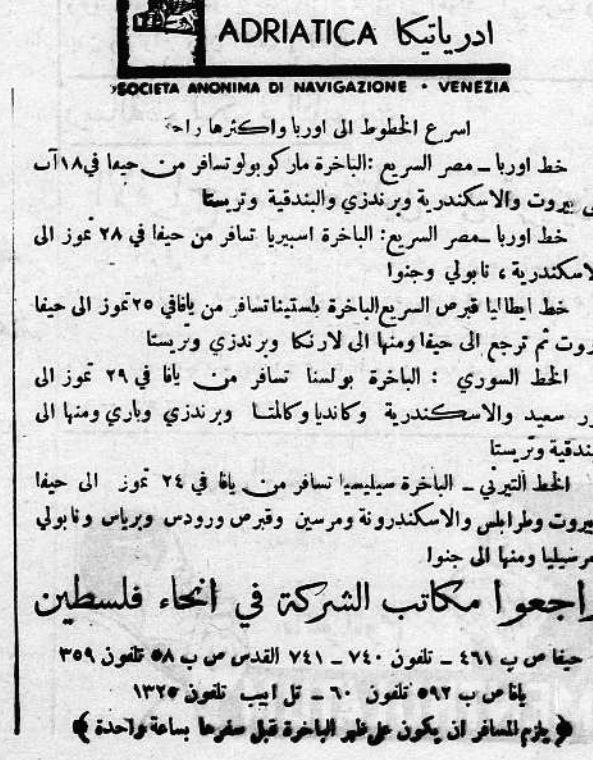 ادرياتيكا ADRIATICA
SOCIETA ANONIMA DI NAVIGAZIONE • VENEZIA
اسرع الخطوط الى اوربا واكثرها راحة
خط اوربا ــ مصر السريع : الباخرة ماركو بولو تسافر من حيفا في ١٨ آب
بيروت والاسكندرية وبرندزي والبندقية وتريستا
خط اوربا ــ مصر السريع : الباخرة اسبيريا تسافر من حيفا في ٢٨ تموز الى
لاسكندرية ، نابولي وجنوا
خط ايطاليا قبرص السريع الباخرة بلستينا تسافر من يافا في ٢٥ تموز الى حيفا
روت ثم ترجع الى حيفا ومنها الى لارنكا وبرندزي وتريستا
الخط السوري : الباخرة بولسنا تسافر من يافا في ٢٩ تموز الى
ر سعيد والاسكندرية وكانديا وكالمتا وبرندزي وباري ومنها الى
ندقية وتريستا
الخط التيرني ــ الباخرة سيليسيا تسافر من يافا في ٢٤ تموز الى حيفا
يروت وطرابلس والاسكندرونة ومرسين وقبرص ورودس وبرياس ونابولي
مرسيليا ومنها الى جنوا
راجعوا مكاتب الشركة في انحاء فلسطين
حيفا ص ب ٤٦١ ــ تلفون ٧٤٠ ــ ٧٤١ القدس ص ب ٥٨ تلفون ٣٥٩
يافا ص ب ٥٩٢ تلفون ٦٠ ــ تل ابيب تلفون ١٣٢٥
﴿ يلزم المسافر ان يكون على ظهر الباخرة قبل سفرها بساعة واحدة ﴾